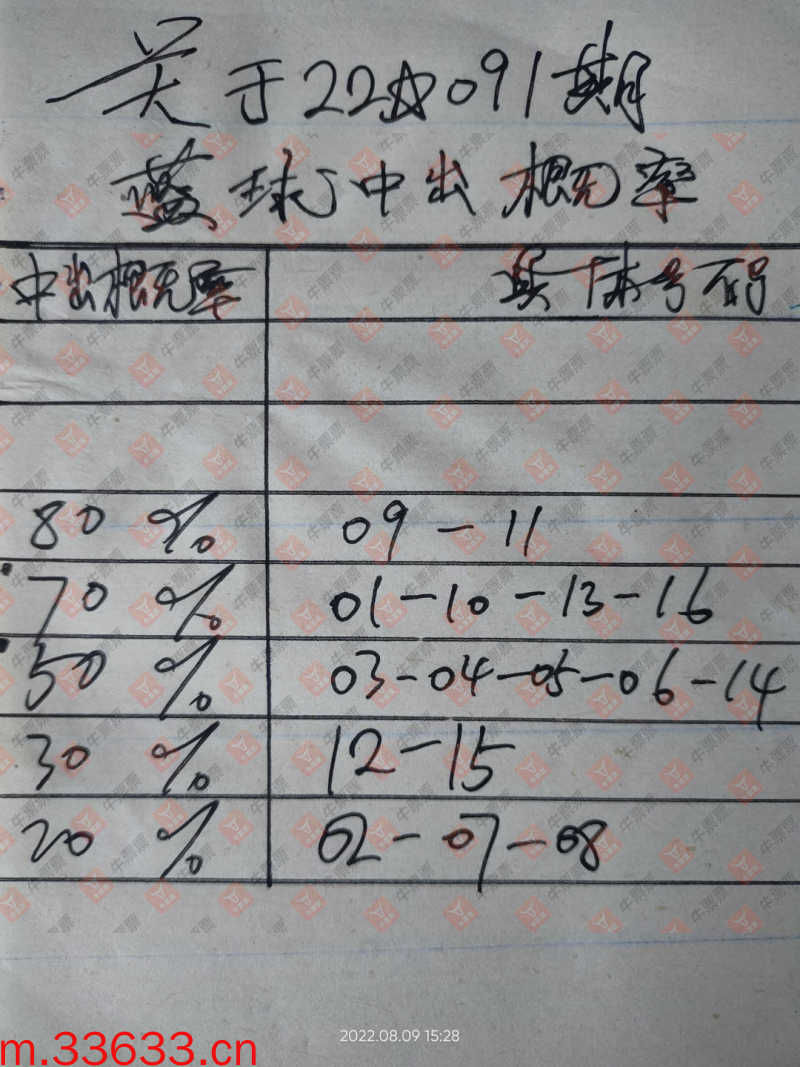 关于22☆091期
蓝球中出概率
中出概率 具体号码
80% 09-11
70% 01-10-13-16
50% 03-04-05-06-14
30% 12-15
20% 02-07-08
2022.08.09 15:28
m.33633.cn
牛票票